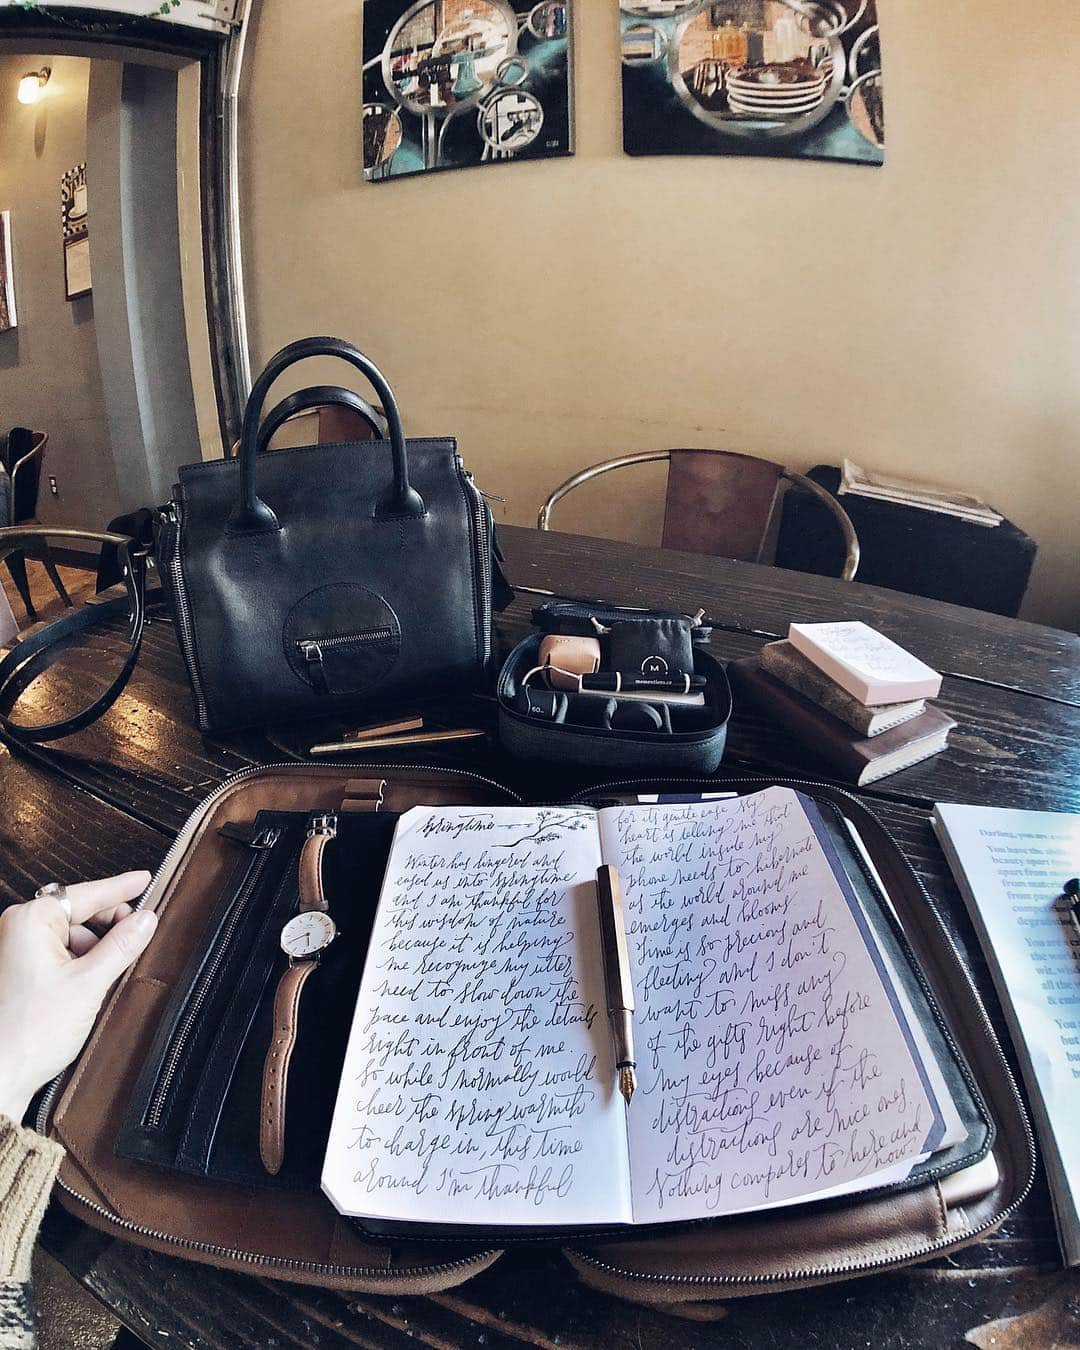 Springtime
Winter has lingered and
eased us into springtime
and I am thankful for
this wisdom of nature
because it is helping
me recognize my utter
need to slow down the
pace and enjoy the details
right in front of me.
So while I normally would
cheer the spring warmth
to charge in, this time
around I'm thankful
for its gentle ease. My
heart is telling me that
the world inside my
phone needs to hibernate
as the world around me
emerges and blooms
Time is so precious and
fleeting and I don't
want to miss any
of the gifts right before
my eyes because of
distractions even if the
distractions are nice ones.
Nothing compares to here and
now.
M
60
Darling, you are
You have the
beauty apart
from
from mater
You are
the wor
wit, wis
all the
&
You
but
but